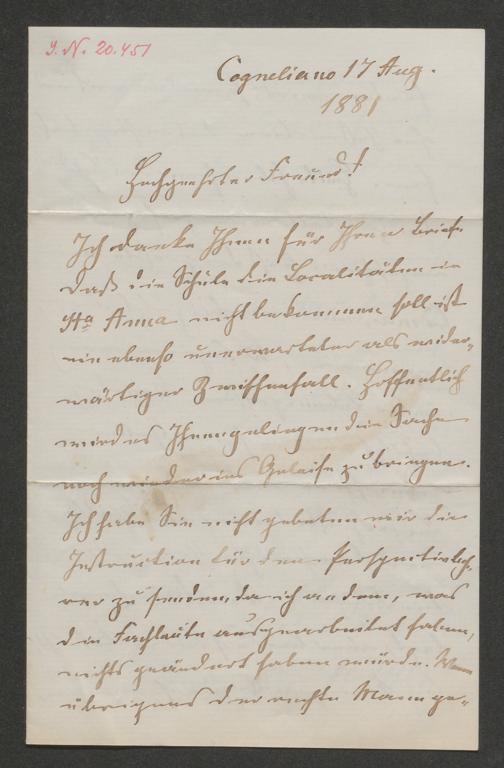 J. N. 20.451
Cogneliano 17 Aug.
1881
Hochgeehrter Freund!
Ich danke Ihnen für Ihren Brief.
Daß die Schule die Localitäten in
Sta Anna nicht bekommen soll ist
ein ebenso unerwarteter als wider-
wärtiger Zwischenfall. Hoffentlich
wird es Ihnen gelingen die Sache
noch wieder ins Geleise zu bringen.
Ich habe Sie nicht gebeten mir die
Instruction für den Perspectivleh-
rer zu senden, da ich an dem, was
die Fachleute ausgearbeitet haben,
nichts geändert haben würde. Wenn
übrigens der rechte Mann ge-